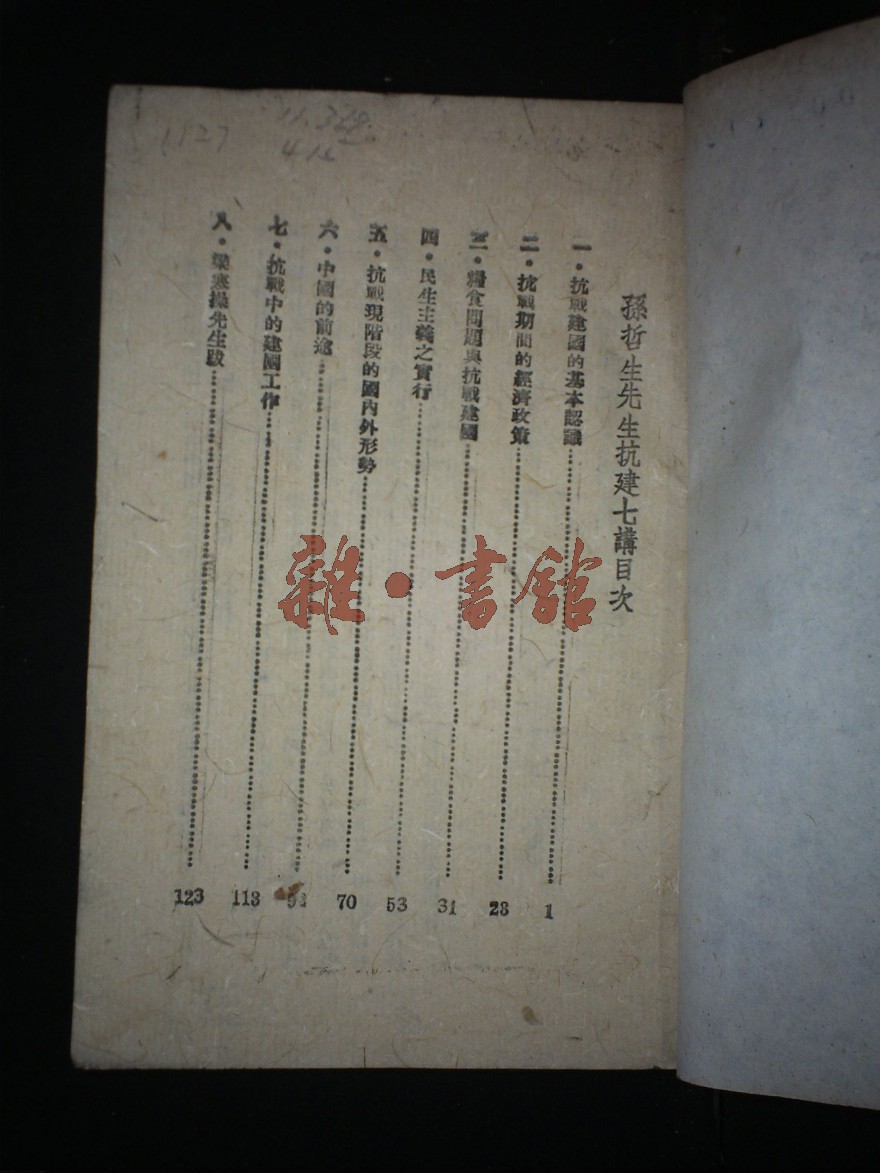 孫哲生先生抗建七講目次
一・抗戰建國的基本認識……1
二・抗戰期間的經濟政策……23
三・糧食問題與抗戰建國……31
四・民生主義之實行……53
五・抗戰現階段的國內外形勢……70
六・中國的前途……
七・抗戰中的建國工作……113
八・梁寒操先生跋……123
雜・書館